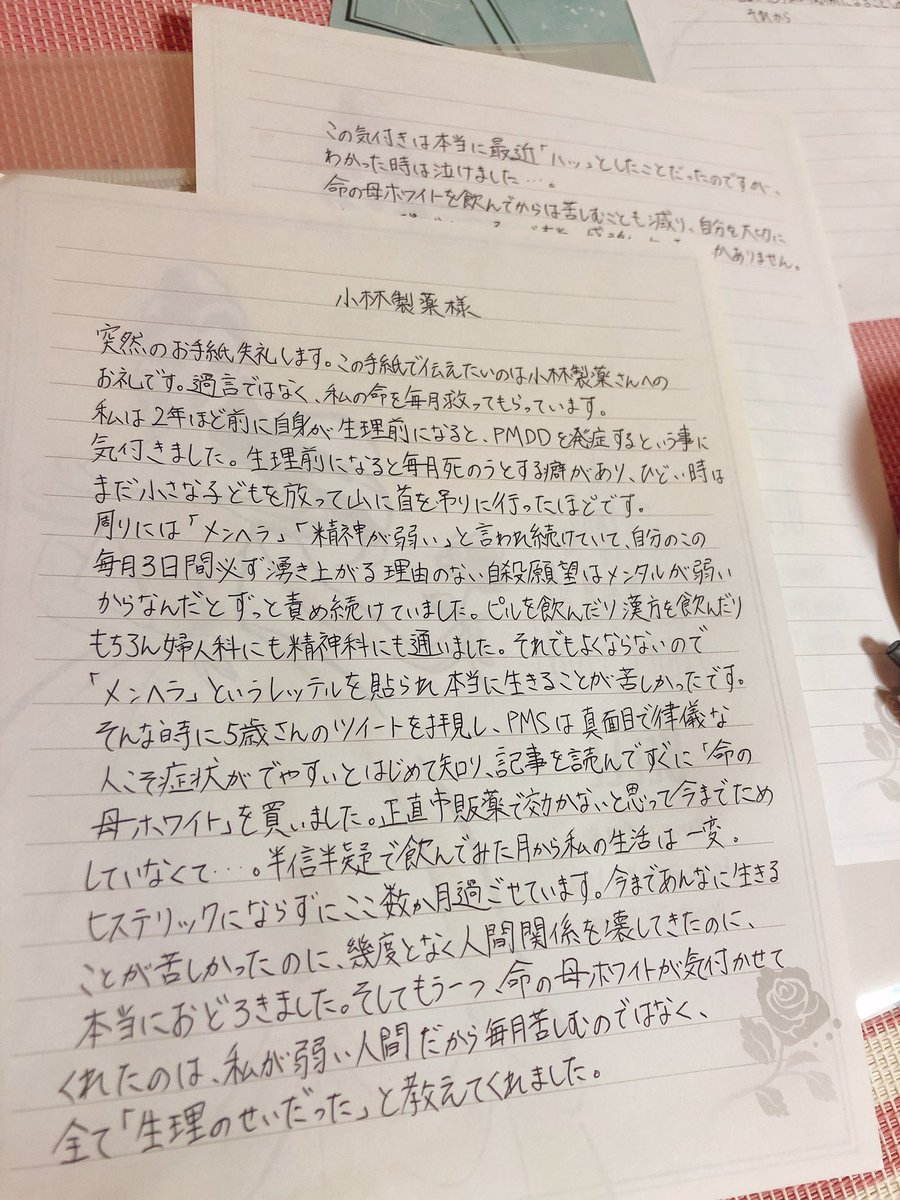 それから
この気付きは本当に最近「ハッ」としたことだったのですが、
わかった時は泣けました…。
命の母ホワイトを飲んでからは苦しむことも減り、自分を大切に
かありません。
小林製薬様
突然のお手紙失礼します。この手紙で伝えたいのは小林製薬さんへの
お礼です。過言ではなく、私の命を毎月救ってもらっています。
私は2年ほど前に自身が生理前になると、PMDDを発症するという事に
気付きました。生理前になると毎月死のうとする癖があり、ひどい時は
まだ小さな子どもを放って山に首を吊りに行ったほどです。
周りには「メンヘラ」「精神が弱い」と言われ続けていて、自分のこの
毎月3日間必ず湧き上がる理由のない自殺願望はメンタルが弱い
からなんだとずっと責め続けていました。ピルを飲んだり漢方を飲んだり
もちろん婦人科にも精神科にも通いました。それでもよくならないので
「メンヘラ」というレッテルを貼られ本当に生きることが苦しかったです。
そんな時に5歳さんのツイートを拝見し、PMSは真面目で律儀な
人こそ症状がでやすいとはじめて知り、記事を読んですぐに「命の
母ホワイト」を買いました。正直市販薬で効かないと思って今までため
していなくて…。半信半疑で飲んでみた月から私の生活は一変。
ヒステリックにならずにここ数か月過ごせています。今まであんなに生きる
ことが苦しかったのに、幾度となく人間関係を壊してきたのに、
本当におどろきました。そしてもう一つ、命の母ホワイトが気付かせて
くれたのは、私が弱い人間だから毎月苦しむのではなく、
全て「生理のせいだった」と教えてくれました。